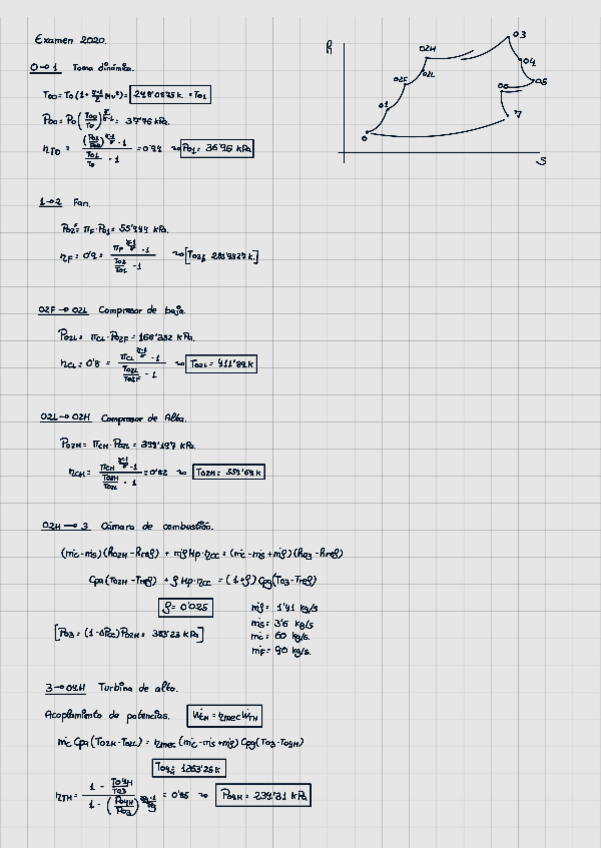 Examen 2020.
0→1 Toma dinámica.
T00 = T0(1+ γ-1/2 M0²) = 248'0875 K = T01
P00 = P0(T00/T0)^γ/γ-1 = 37'76 kPa.
ηTD = ((P01/P00)^γ-1/γ - 1)/(T01/T0 - 1) = 0'94 → P01 = 36'96 kPa
1→2 Fan.
P02F = πF·P01 = 55'444 kPa.
ηF = 0'9 = (πF^γ-1/γ - 1)/(T02F/T01 - 1)
02F→02L Compresor de baja.
P02L = πCL·P02F = 166'332 kPa.
ηCL = 0'8 = (πCL^γ-1/γ - 1)/(T02L/T02F - 1) → T02L = 411'89 K
02L→02H Compresor de Alta.
P02H = πCH·P02L = 399'197 kPa.
ηCH = (πCH^γ-1/γ - 1)/(T02H/T02L - 1) = 0'82 → T02H =
02H→3 Cámara de combustión.
(ṁc-ṁs)(h02H-href) + ṁf Hp·ηcc = (ṁc-ṁs+ṁf)(h03-href)
Cpa(T02H-Tref) + f Hp·ηcc = (1+f)Cpg(T03-Tref)
f = 0'025
ṁf = 1'41 kg/s
ṁs = 3'6 kg/s
ṁc = 60 kg/s.
ṁF = 90 kg/s.
[P03 = (1-ΔPcc)P02H = kPa]
3→04H Turbina de alta.
Acoplamiento de potencias. ẆCH = ηmec ẆTH
ṁc Cpa(T02H-T02L) = ηmec(ṁc-ṁs+ṁf)Cpg(T03-T04H)
T04H = 1253'25 K
ηTH = (1 - T04H/T03)/(1 - (P04H/P03)^γg-1/γg) = 0'85 → P04H = 239'31 kPa
h
02H
03
04
02F
02L
05
06
01
7
0
S